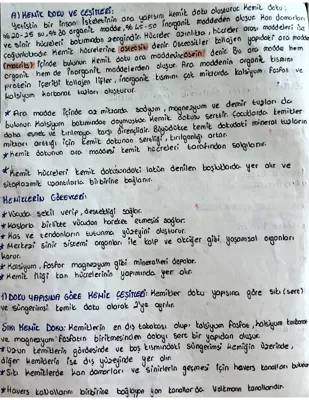 A) KEMİK DOKU VE ÇEŞİTLERİ:
Yetişkin bir insan iskeletinin ara yapısını kemik doku oluşturur. Kemik doku;
%20-25 su, %30 organik madde, %45-50 inorganik maddeden oluşur. Kan damarları
ve sinir hücreleri bakımından zengindir. Hücreler azınlıkta, hücreler arası maddeleri ise
çoğunluktadır. Kemik hücrelerine osteosit denir. Osteositler kollajen yapıdaki ara madde
içinde bulunur. Kemik doku ara maddesine osein denir. Bu ara madde hem
organik hem de inorganik maddelerden oluşur. Ara maddenin organik kısmını
protein içerikli kollajen lifler, inorganik kısmını çok miktarda kalsiyum fosfat ve
kalsiyum karbonat tuzları oluşturur.
* Ara madde içinde az miktarda sodyum, magnezyum ve demir tuzları da
bulunur. Kalsiyum bakımından doymuştur. Kemik dokusu serttir. Çocuklarda kemikler
daha esnek ve kırılmaya karşı dirençlidir. Büyüdükçe kemik dokudaki mineral tuzların
miktarı arttığı için kemik dokunun sertliği, kırılganlığı artar.
* Kemik dokunun ara maddesi kemik hücreleri tarafından salgılanır.
* Kemik hücreleri kemik dokusundaki lakün denilen boşluklarda yer alır ve
sitoplazmik uzantılarla birbirine bağlanır.
KEMİKLERİN GÖREVLERİ:
* Vücuda şekil verir, desteklik sağlar.
* Kaslarla birlikte vücudun hareket etmesini sağlar.
* Kas ve tendonların tutunma yüzeyini oluşturur.
* Merkezi sinir sistemi organları ile kalp ve akciğer gibi yaşamsal organları
korur.
* Kalsiyum, fosfor magnezyum gibi mineralleri depolar.
* Kemik iliği kan hücrelerinin yapımında yer alır.
1) DOKU YAPISINA GÖRE KEMİK ÇEŞİTLERİ: Kemikler doku yapısına göre sıkı (sert)
ve süngerimsi kemik doku olarak 2'ye ayrılır.
SIKI KEMİK DOKU: Kemiklerin en dış tabakası olup kalsiyum fosfat, kalsiyum karbonat
ve magnezyum fosfatın birikmesinden dolayı sert bir yapıdan oluşur.
* Uzun kemiklerin gövdesinde ve baş kısmındaki süngerimsi kemiğin üzerinde,
diğer kemiklerin ise dış yüzeyinde yer alır.
* Sıkı kemiklerde kan damarları ve sinirlerin geçmesi için havers kanalları bulunur.
* Havers kanallarını birbirine bağlayan yan kanallarda Volkmann kanallarıdır.